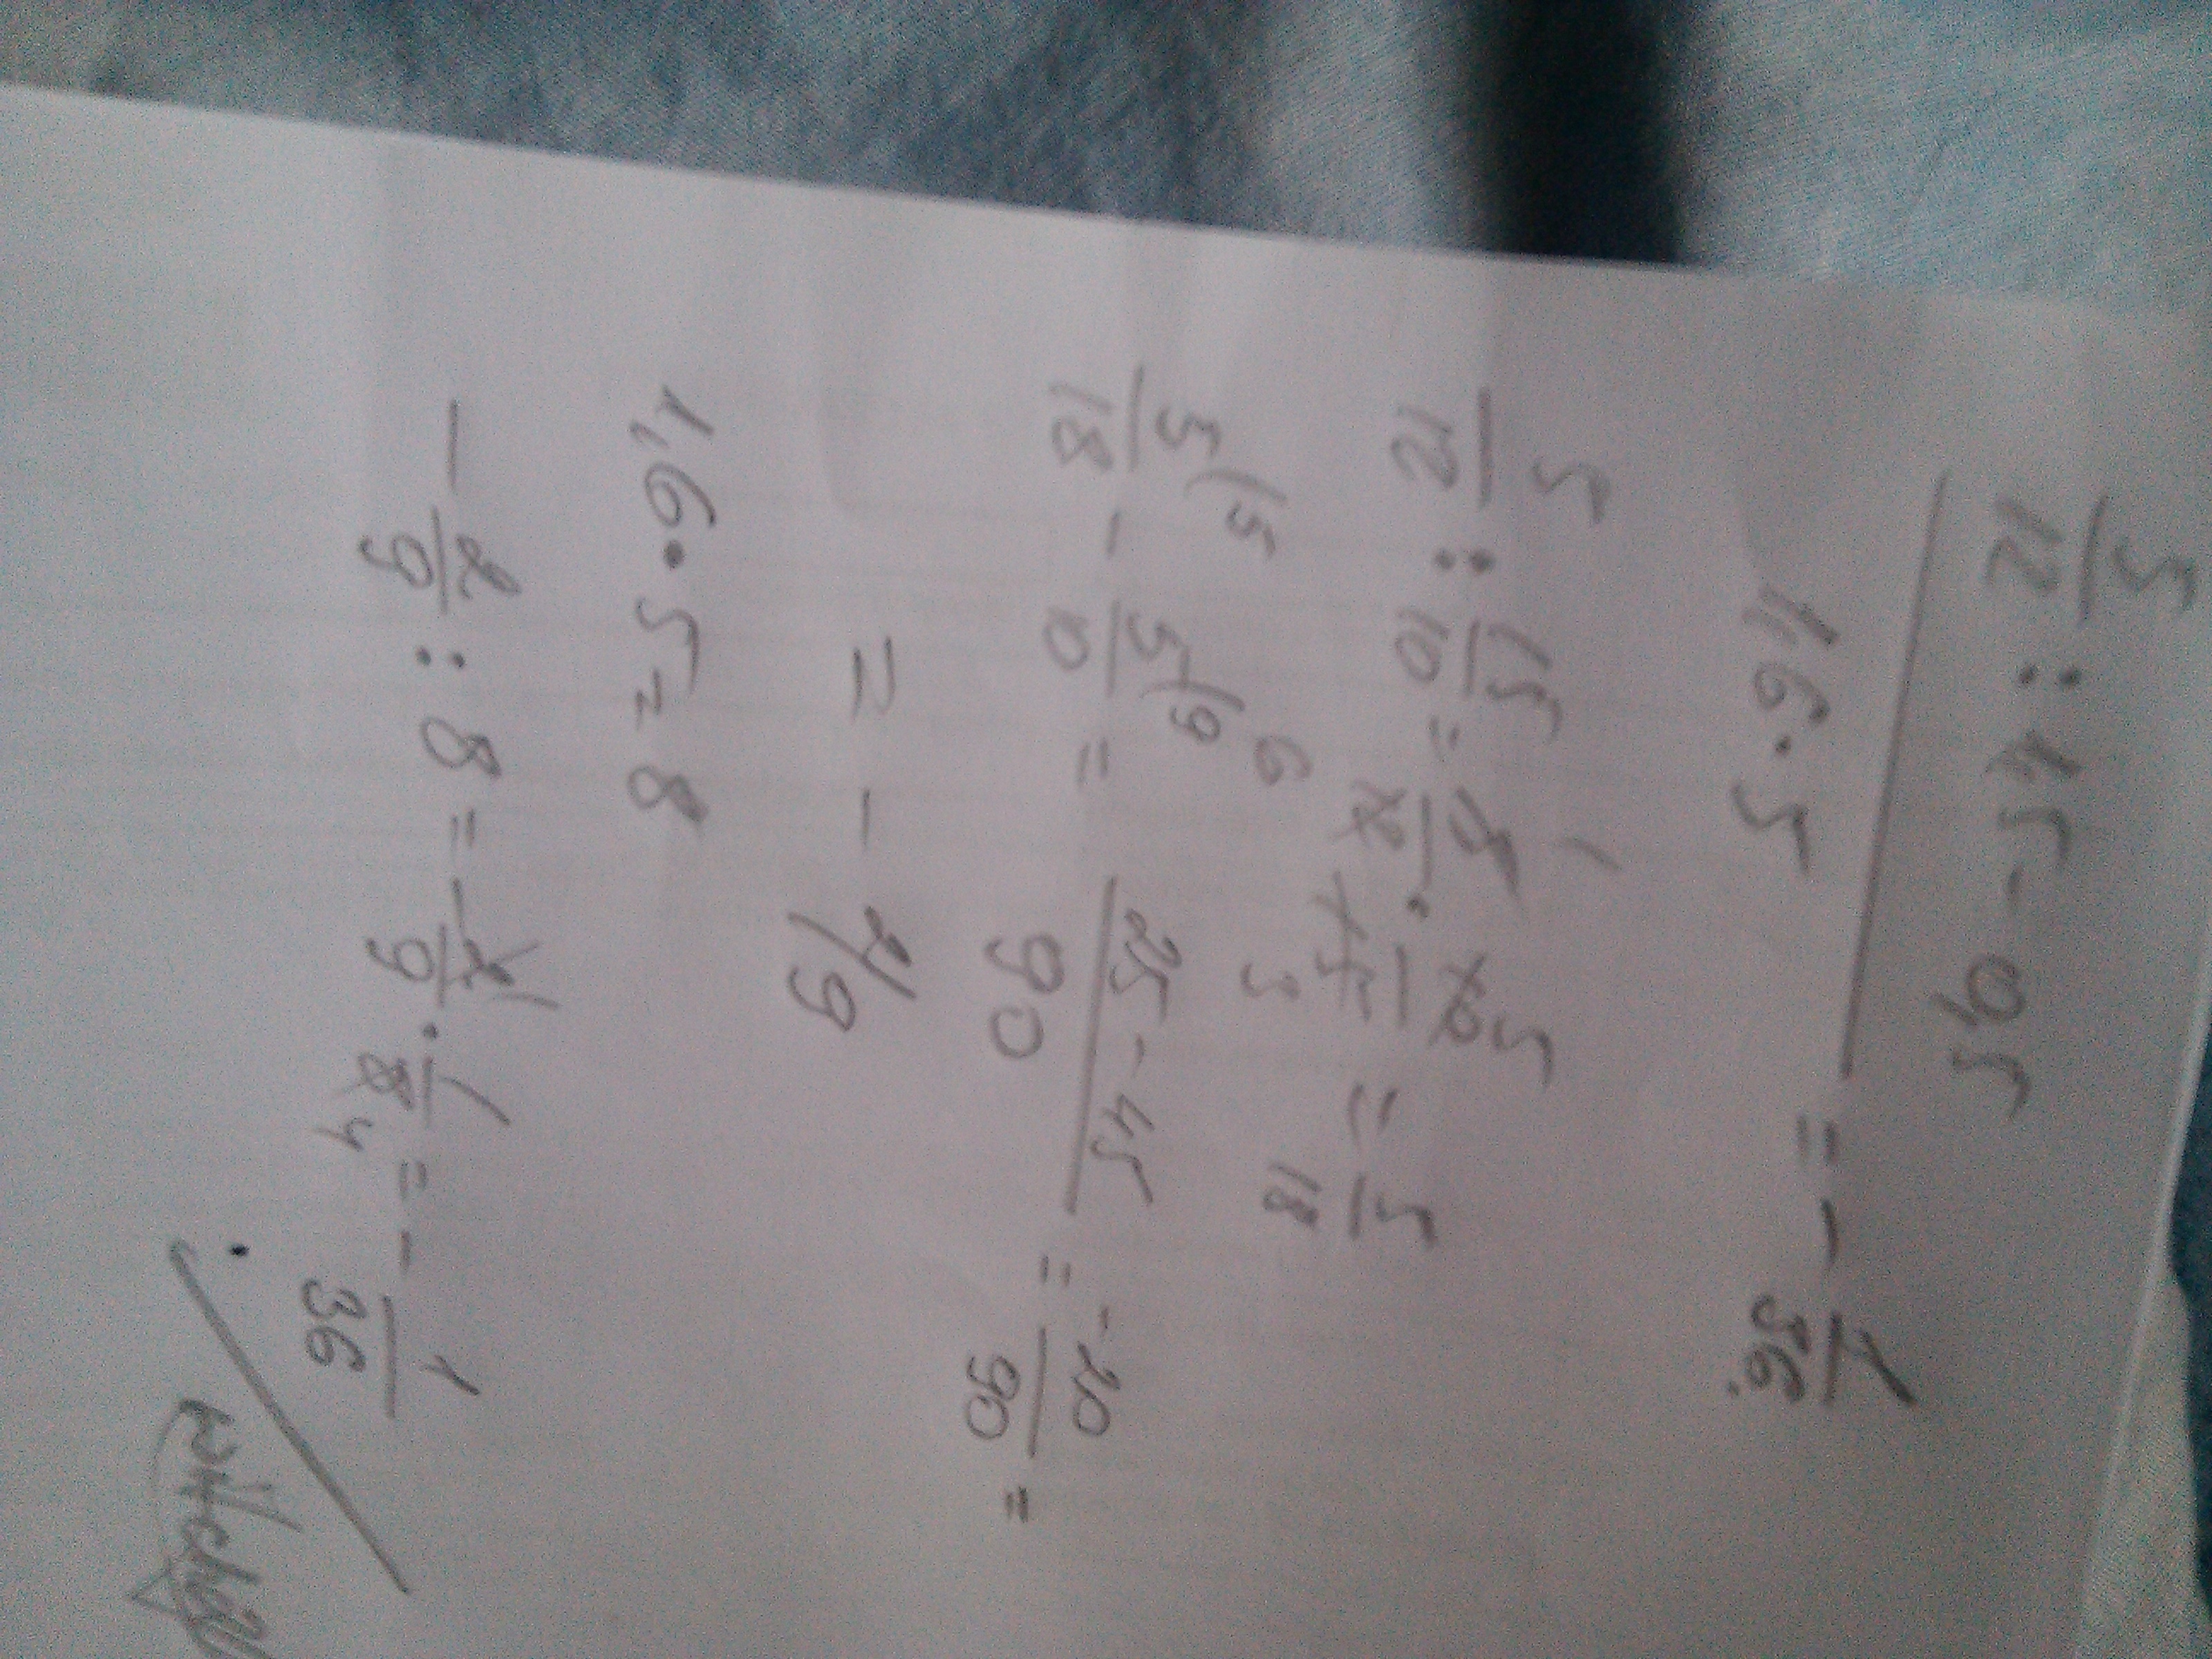 5/12 : 1,5 - 0,5
1,6 · 5 = - 1/36.
5/12 : 15/10 = 5/12 · 10/15 = 5/18
1 5
6 3
5/18 (5 - 5/10 (9 = 25 - 45/90 = -20/90 =
= - 2/9
1,6 · 5 = 8
- 2/9 : 8 = - 2/9 · 1/8 4 = - 1/36